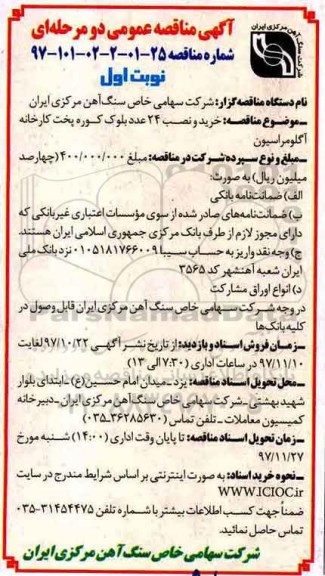 آگهی مناقصه عمومی دو مرحله‌ای
شماره مناقصه ۲۵-۰۱-۲-۰۲-۱۰۱-۹۷
نوبت اول
شرکت سنگ آهن مرکزی ایران
نام دستگاه مناقصه‌گزار: شرکت سهامی خاص سنگ‌آهن مرکزی ایران
ـ موضوع مناقصه: خرید و نصب ۲۴ عدد بلوک کوره پخت کارخانه
آگلومراسیون
ـ مبلغ و نوع سپرده شرکت در مناقصه: مبلغ ۴۰۰/۰۰۰/۰۰۰ (چهارصد
میلیون ریال) به صورت:
الف) ضمانت‌نامه بانکی
ب) ضمانت‌نامه‌های صادر شده از سوی مؤسسات اعتباری غیربانکی که
دارای مجوز لازم از طرف بانک مرکزی جمهوری اسلامی ایران هستند.
ج) وجه نقد واریز به حساب سیبا ۰۱۰۵۱۸۱۷۶۶۰۰۹ نزد بانک ملی
ایران شعبه آهنشهر کد ۳۵۶۵
د) انواع اوراق مشارکت
در وجه شرکت سهامی خاص سنگ آهن مرکزی ایران قابل وصول در
کلیه بانک‌ها
ـ زمان فروش اسناد و بازدید: از تاریخ نشر آگهی ۹۷/۱۰/۲۲ لغایت
۹۷/۱۱/۱۰ در ساعات اداری (۷:۳۰ الی ۱۳)
ـ محل تحویل اسناد مناقصه: یزد ـ میدان امام حسین(ع) ـ ابتدای بلوار
شهید بهشتی ـ شرکت سهامی خاص سنگ آهن مرکزی ایران ـ دبیرخانه
کمیسیون معاملات ـ تلفن تماس (۳۶۲۸۵۶۳۰-۰۳۵)
ـ زمان تحویل اسناد مناقصه: تا پایان وقت اداری (۱۴:۰۰) شنبه مورخ
۹۷/۱۱/۲۷
ـ نحوه خرید اسناد: به صورت اینترنتی بر اساس شرایط مندرج در سایت
WWW.ICIOC.ir
ضمناً جهت کسب اطلاعات بیشتر با شماره تلفن ۳۱۴۵۴۴۷۵-۰۳۵
تماس حاصل نمائید.
شرکت سهامی خاص سنگ آهن مرکزی ایران